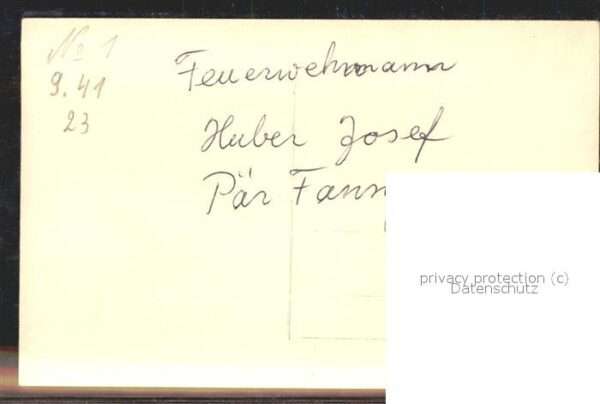 No 1
9.41
23
Feuerwehrmann
Huber Josef
Pär
privacy protection (c)
Datenschutz